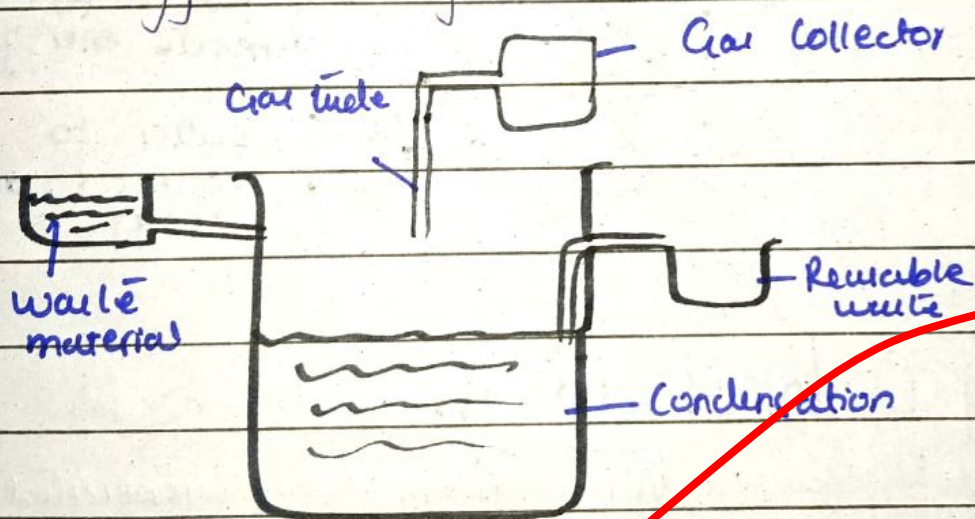 Gas Collector
Gas tube
Waste
material
Reusable
waste
Condensation